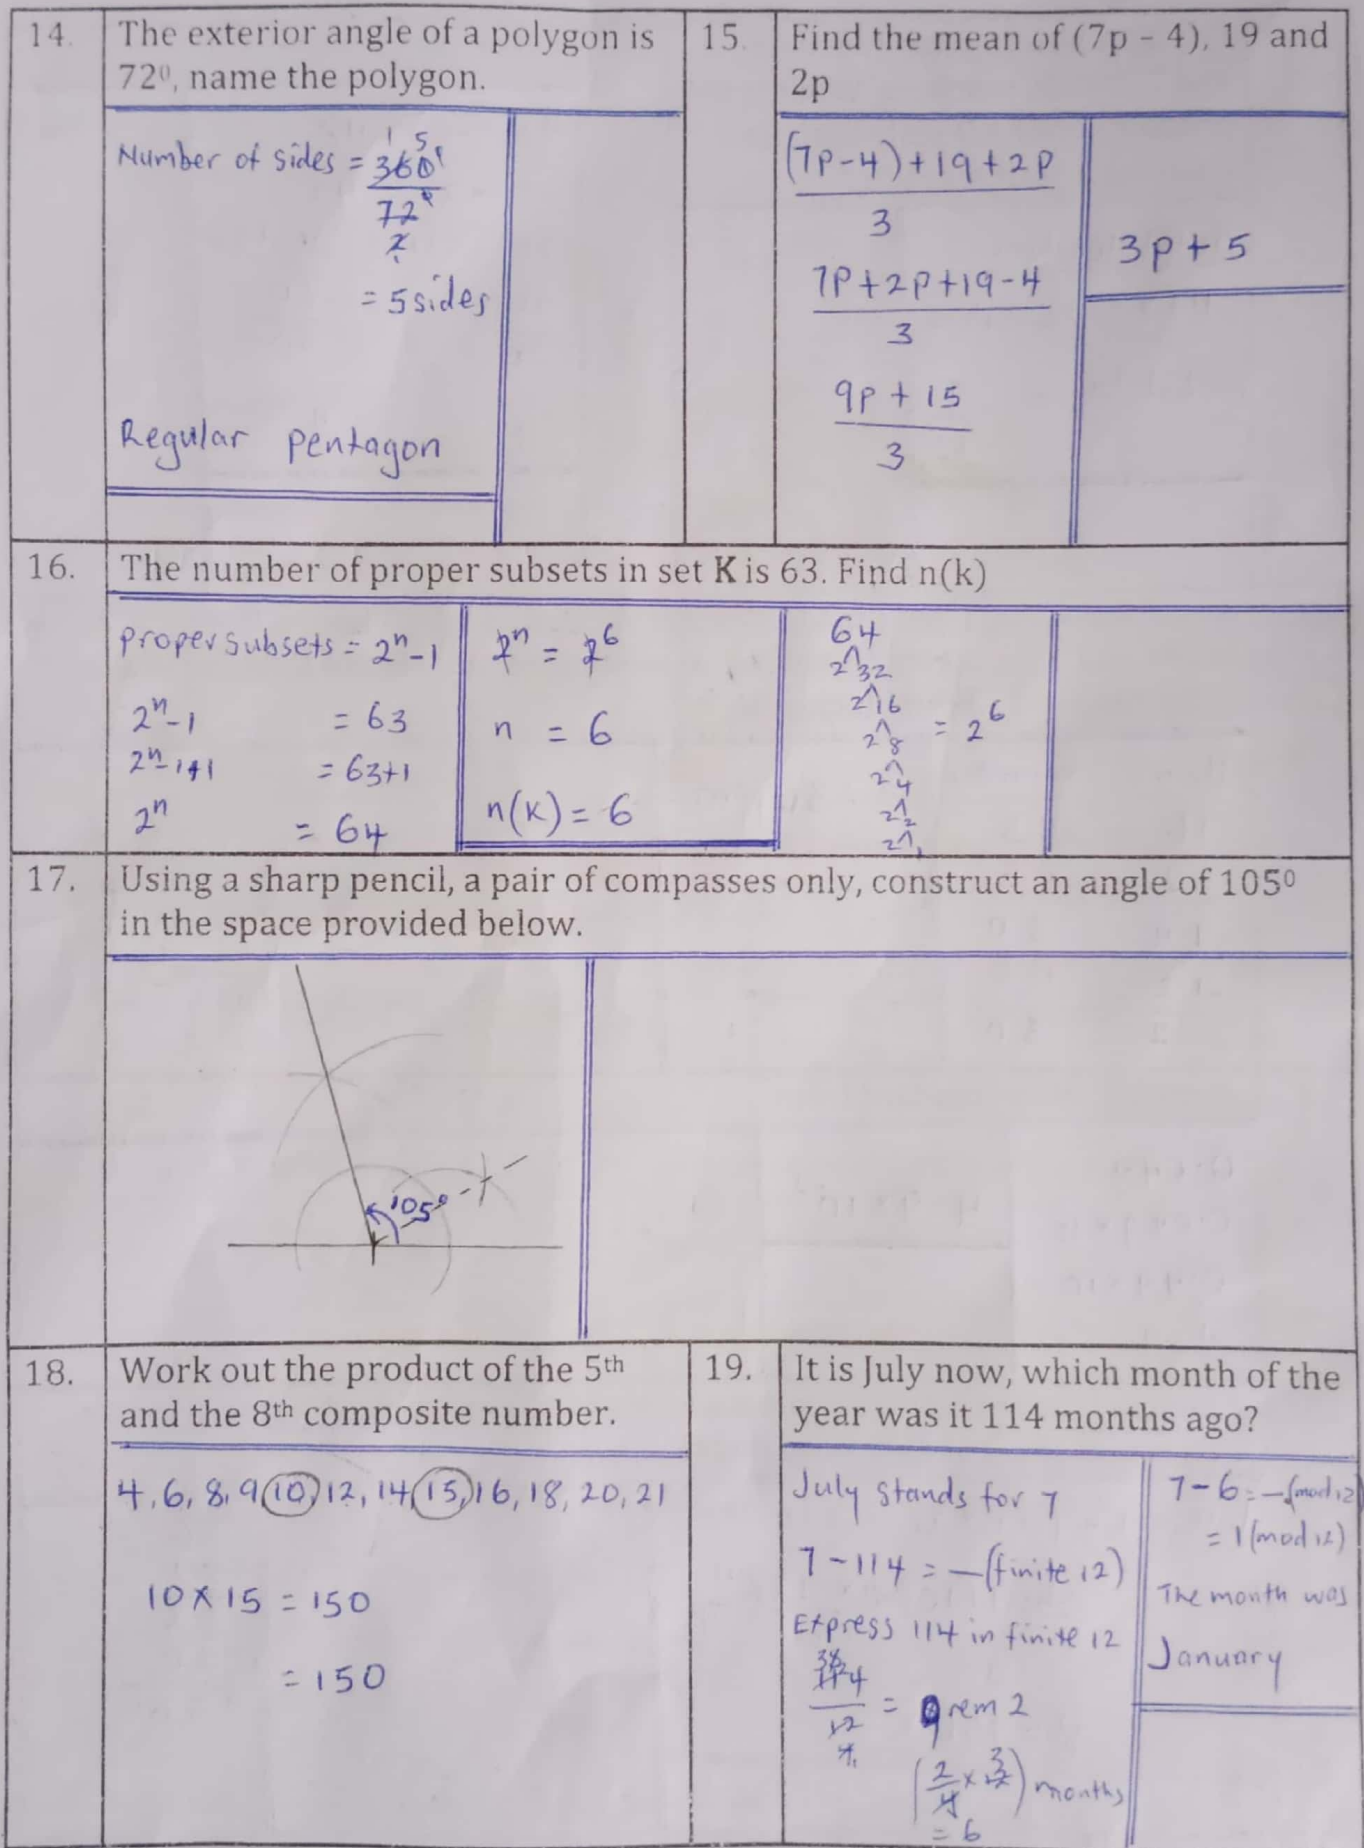 14.
The exterior angle of a polygon is
72⁰, name the polygon.
Number of sides = 360°
1 5
72°
2
1
= 5 sides
Regular pentagon
15.
Find the mean of (7p - 4), 19 and
2p
(7p-4)+19+2p
3
7p+2p+19-4
3
9p + 15
3
3p + 5
16.
The number of proper subsets in set K is 63. Find n(k)
proper subsets = 2ⁿ-1
2ⁿ-1 = 63
2ⁿ-1+1 = 63+1
2ⁿ = 64
2ⁿ = 2⁶
n = 6
n(k) = 6
64
2 32
2 16
2 8 = 2⁶
2 4
2 2
2 1
17.
Using a sharp pencil, a pair of compasses only, construct an angle of 105⁰
in the space provided below.
105°
18.
Work out the product of the 5th
and the 8th composite number.
4, 6, 8, 9, 10, 12, 14, 15, 16, 18, 20, 21
10 x 15 = 150
= 150
19.
It is July now, which month of the
year was it 114 months ago?
July stands for 7
7 - 114 = — (finite 12)
Express 114 in finite 12
38
114
12
4
= 9 rem 2
(2/4 x 12) months
3
= 6
7 - 6 = — (mod 12)
= 1 (mod 12)
The month was
January